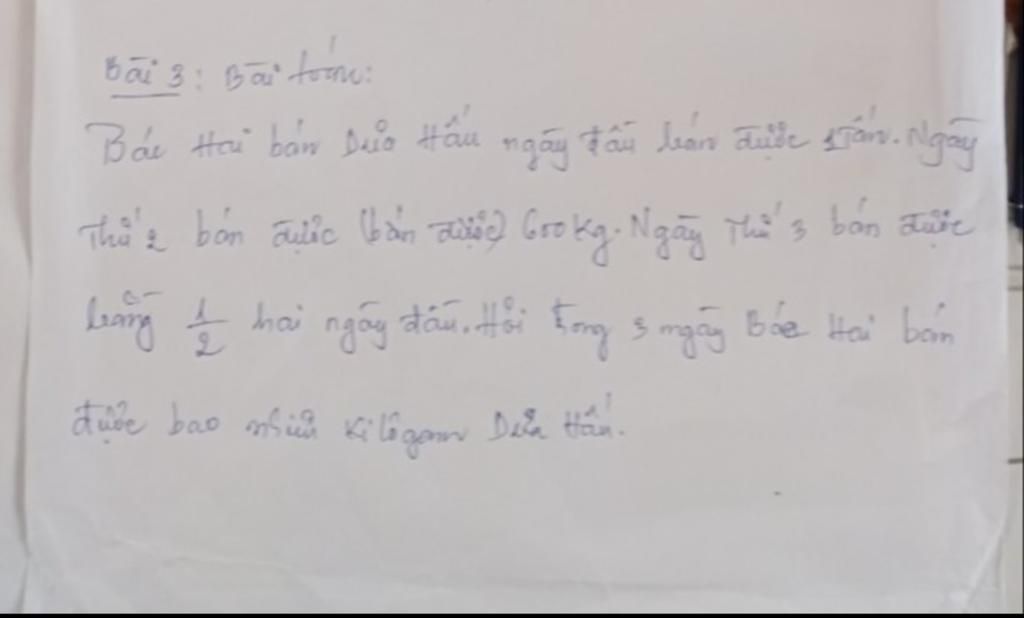 Bài 3: Bài toán:
Bác Hai bán Dưa Hấu ngày đầu bán được 1 Tấn. Ngày
Thứ 2 bán được (bán được) 600kg. Ngày Thứ 3 bán được
bằng 1/2 hai ngày đầu. Hỏi trong 3 ngày Bác Hai bán
được bao nhiêu Kilôgam Dưa Hấu.